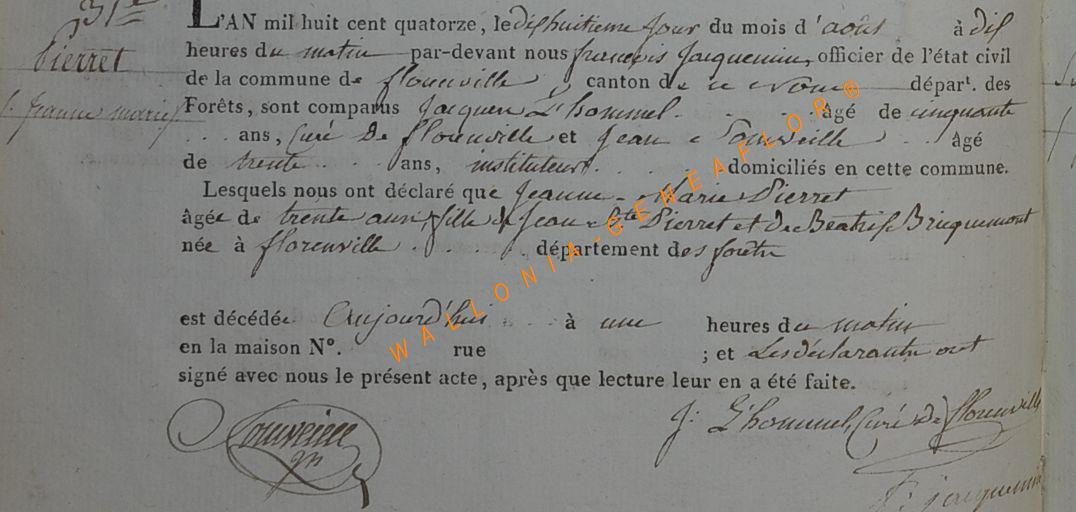 31e
Pierret
Jeanne marie
L'AN mil huit cent quatorze, le dishuitieme jour du mois d'août à dis
heures du matin par-devant nous francois Jacquemin, officier de l'état civil
de la commune de florenville, canton de départ. des
Forêts, sont comparus Jacques L'hommel. âgé de cinquante
ans, Curé De florenville et Jean âgé
de trente ans, instituteur domiciliés en cette commune.
Lesquels nous ont déclaré que Jeanne Marie Pierret
âgée de trente ans, fille de Jean Bte Pierret et De Beatrise Briquemont
née à florenville département des forêts
est décédée Aujourd'hui à une heures du matin
en la maison N°. rue ; et Les déclarants ont
signé avec nous le présent acte, après que lecture leur en a été faite.
J: L'hommel, Curé De florenville
F: jacquemin
WALLONIA-GENEAFLOR®